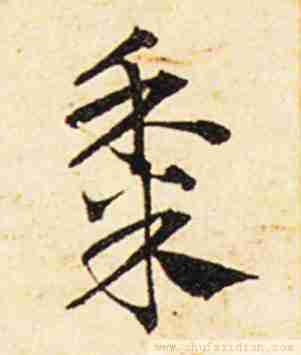 黍
www.shufazidian.com